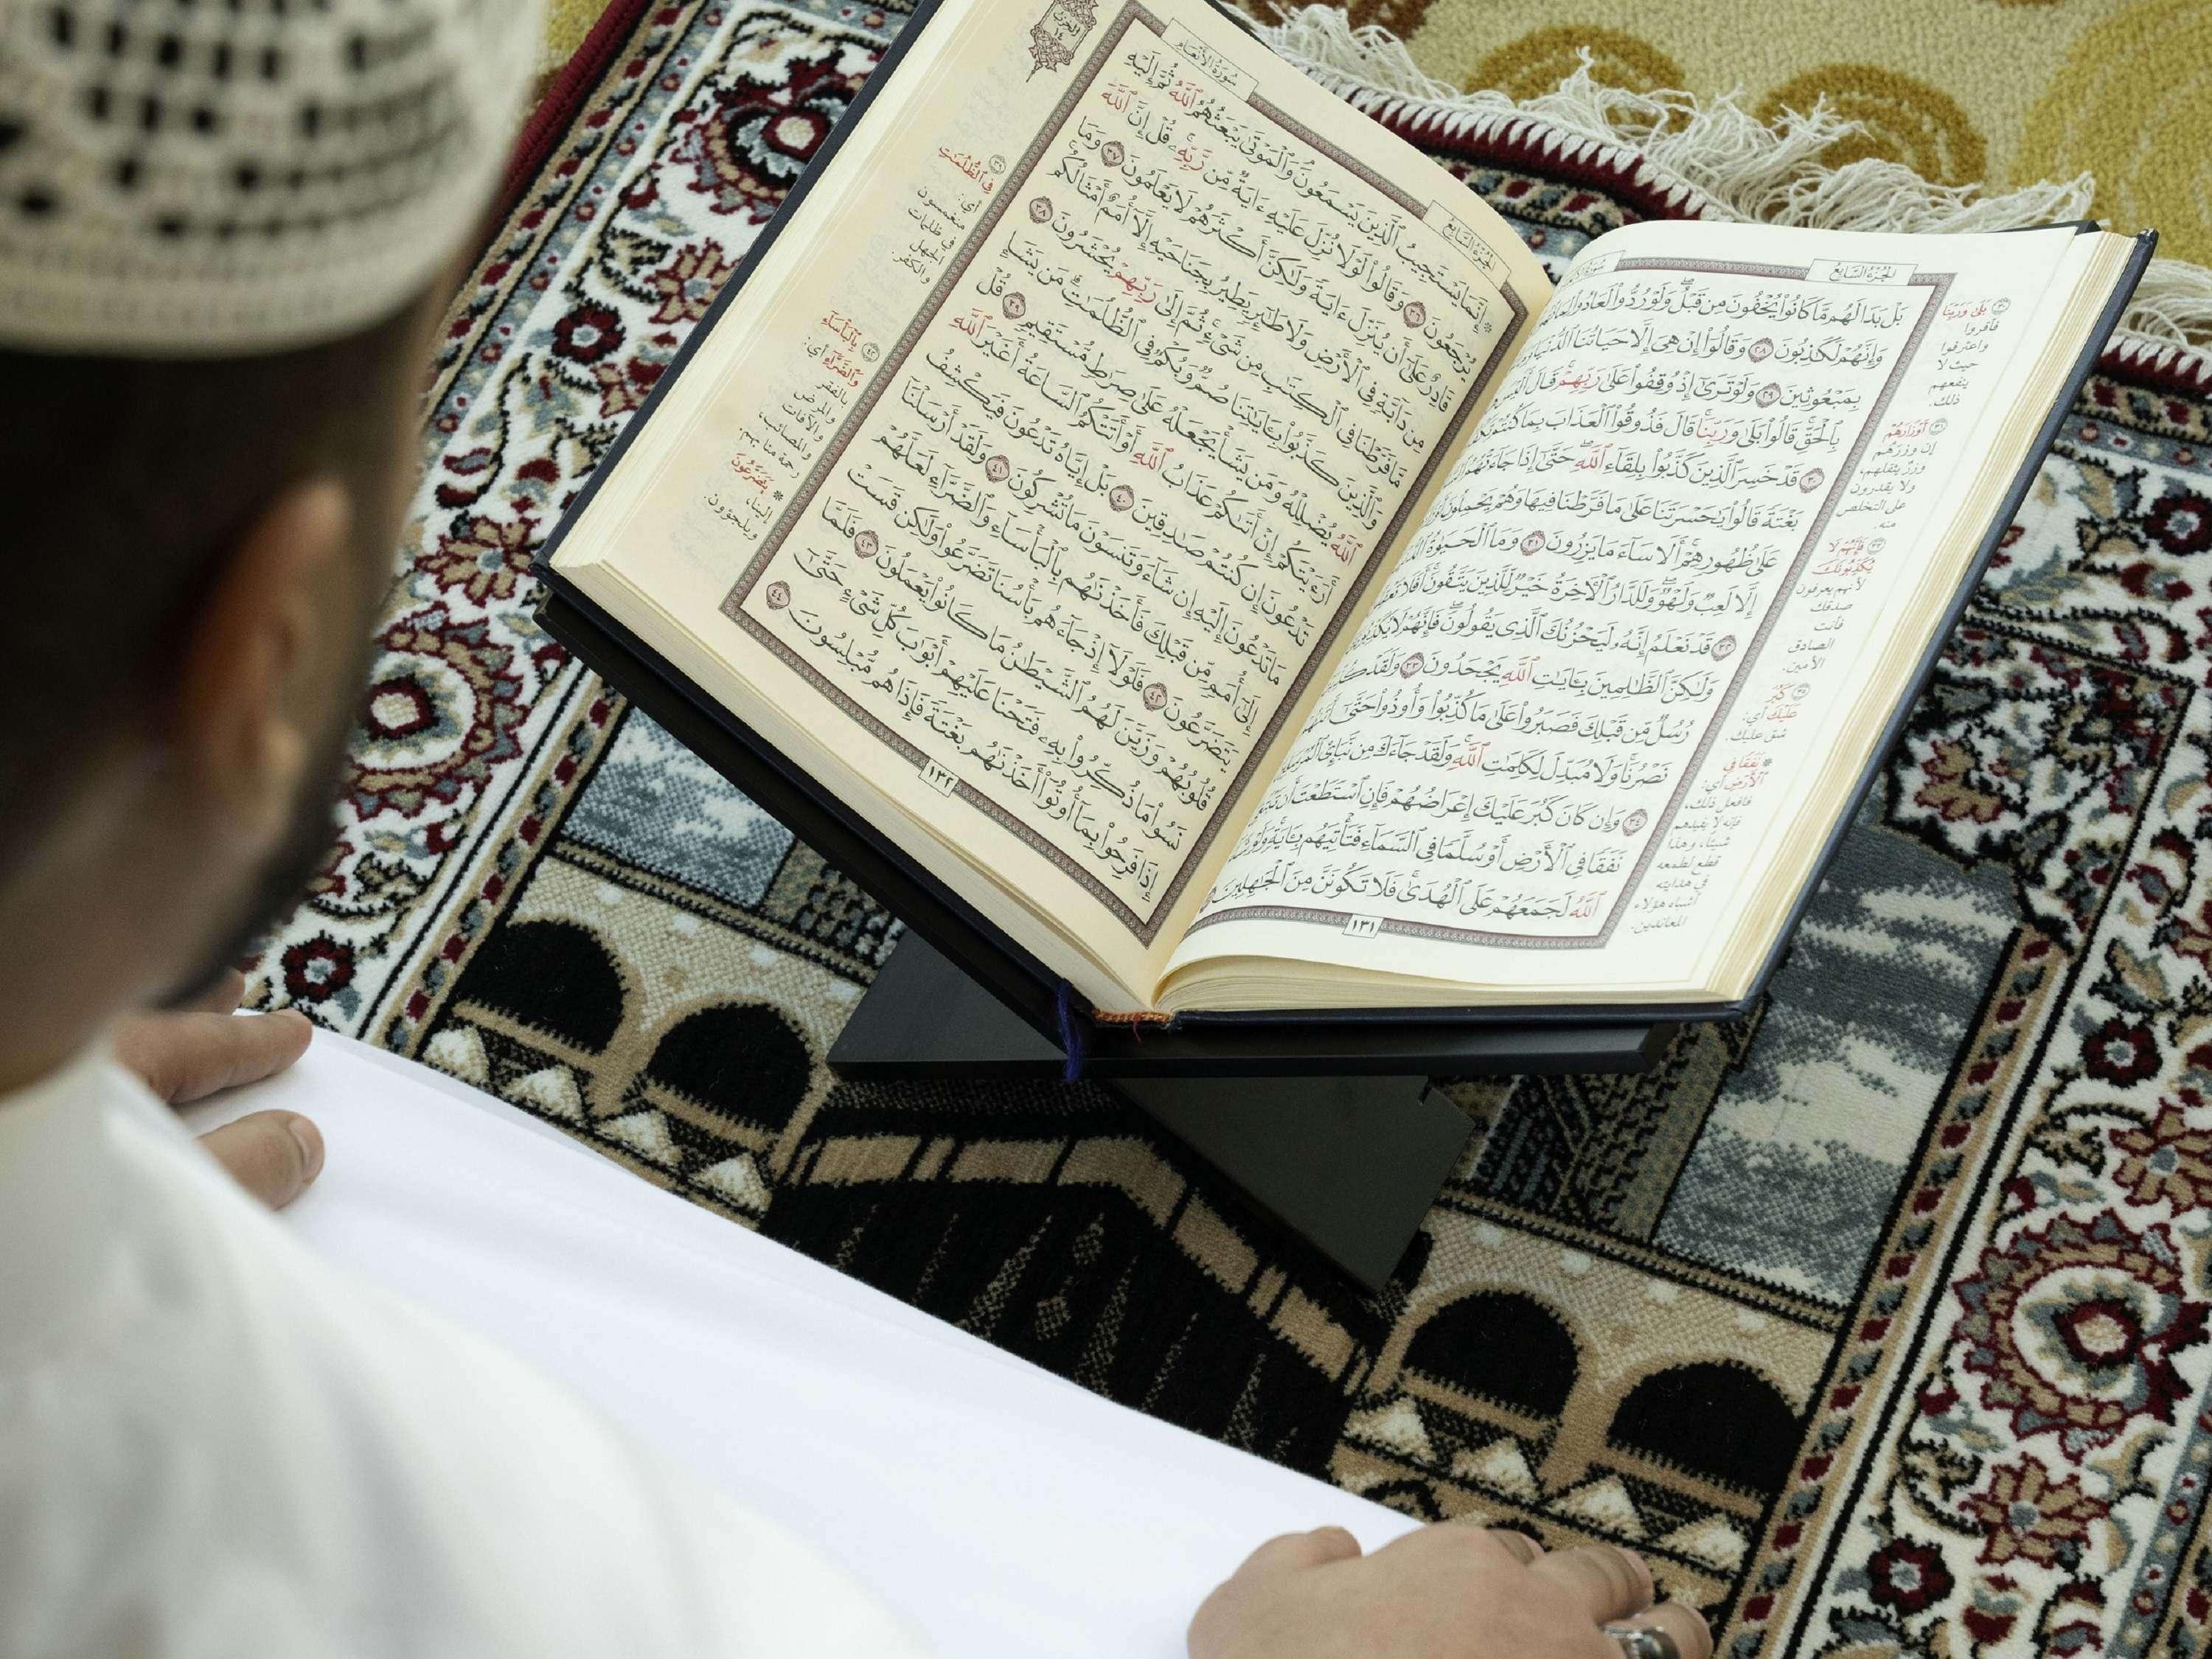 الجُزْءُ السَّابِعُ
بَلْ بَدَا لَهُم مَّا كَانُوا۟ يُخْفُونَ مِن قَبْلُ ۖ وَلَوْ رُدُّوا۟ لَعَادُوا۟
وَإِنَّهُمْ لَكَـٰذِبُونَ ٢٨ وَقَالُوٓا۟ إِنْ هِىَ إِلَّا حَيَاتُنَا ٱلدُّنْيَا
بِمَبْعُوثِينَ ٢٩ وَلَوْ تَرَىٰٓ إِذْ وُقِفُوا۟ عَلَىٰ رَبِّهِمْ ۚ قَالَ أَلَيْسَ
بِٱلْحَقِّ ۚ قَالُوا۟ بَلَىٰ وَرَبِّنَا ۚ قَالَ فَذُوقُوا۟ ٱلْعَذَابَ بِمَا كُنتُمْ
٣٠ قَدْ خَسِرَ ٱلَّذِينَ كَذَّبُوا۟ بِلِقَآءِ ٱللَّهِ ۖ حَتَّىٰٓ إِذَا جَآءَتْهُمُ
بَغْتَةً قَالُوا۟ يَـٰحَسْرَتَنَا عَلَىٰ مَا فَرَّطْنَا فِيهَا وَهُمْ يَحْمِلُونَ
عَلَىٰ ظُهُورِهِمْ ۚ أَلَا سَآءَ مَا يَزِرُونَ ٣١ وَمَا ٱلْحَيَوٰةُ
إِلَّا لَعِبٌ وَلَهْوٌ ۖ وَلَلدَّارُ ٱلْـَٔاخِرَةُ خَيْرٌ لِّلَّذِينَ يَتَّقُونَ ۗ أَفَلَا
٣٢ قَدْ نَعْلَمُ إِنَّهُۥ لَيَحْزُنُكَ ٱلَّذِى يَقُولُونَ ۖ فَإِنَّهُمْ لَا
وَلَـٰكِنَّ ٱلظَّـٰلِمِينَ بِـَٔايَـٰتِ ٱللَّهِ يَجْحَدُونَ ٣٣ وَلَقَدْ
رُسُلٌ مِّن قَبْلِكَ فَصَبَرُوا۟ عَلَىٰ مَا كُذِّبُوا۟ وَأُوذُوا۟ حَتَّىٰٓ
نَصْرُنَا ۚ وَلَا مُبَدِّلَ لِكَلِمَـٰتِ ٱللَّهِ ۚ وَلَقَدْ جَآءَكَ مِن نَّبَإِى۟
٣٤ وَإِن كَانَ كَبُرَ عَلَيْكَ إِعْرَاضُهُمْ فَإِنِ ٱسْتَطَعْتَ أَن
نَفَقًا فِى ٱلْأَرْضِ أَوْ سُلَّمًا فِى ٱلسَّمَآءِ فَتَأْتِيَهُم بِـَٔايَةٍ ۚ وَلَوْ
ٱللَّهُ لَجَمَعَهُمْ عَلَى ٱلْهُدَىٰ ۚ فَلَا تَكُونَنَّ مِنَ ٱلْجَـٰهِلِينَ
١٣١
بَلَىٰ وَرَبِّنَا
فأقروا
واعترفوا
حيث لا
ينفعهم
ذلك.
أَوْزَارَهُمْ
إن وزرهم
وزرٌ يثقلهم،
ولا يقدرون
على التخلص
منه.
فَإِنَّهُمْ لَا
يُكَذِّبُونَكَ
لأنهم يعرفون
صدقك
فأنت
الصادق
الأمين.
كَبُرَ
عَلَيْكَ أي:
شق عليك.
نَفَقًا فِى
ٱلْأَرْضِ أي:
فافعل ذلك،
فإنه لا يفيدهم
شيئًا، وهذا
قطع لطمعه
في هدايته
أشباه هؤلاء
المعاندين.
الجُزْءُ السَّابِعُ
سُورَةُ الأَنْعَامِ
إِنَّمَا يَسْتَجِيبُ ٱلَّذِينَ يَسْمَعُونَ ۘ وَٱلْمَوْتَىٰ يَبْعَثُهُمُ ٱللَّهُ ثُمَّ إِلَيْهِ
يُرْجَعُونَ ٣٦ وَقَالُوا۟ لَوْلَا نُزِّلَ عَلَيْهِ ءَايَةٌ مِّن رَّبِّهِۦ ۚ قُلْ إِنَّ ٱللَّهَ
قَادِرٌ عَلَىٰٓ أَن يُنَزِّلَ ءَايَةً وَلَـٰكِنَّ أَكْثَرَهُمْ لَا يَعْلَمُونَ ٣٧ وَمَا
مِن دَآبَّةٍ فِى ٱلْأَرْضِ وَلَا طَـٰٓئِرٍ يَطِيرُ بِجَنَاحَيْهِ إِلَّآ أُمَمٌ أَمْثَالُكُم
مَّا فَرَّطْنَا فِى ٱلْكِتَـٰبِ مِن شَىْءٍ ۚ ثُمَّ إِلَىٰ رَبِّهِمْ يُحْشَرُونَ ٣٨
وَٱلَّذِينَ كَذَّبُوا۟ بِـَٔايَـٰتِنَا صُمٌّ وَبُكْمٌ فِى ٱلظُّلُمَـٰتِ ۗ مَن يَشَإِ
ٱللَّهُ يُضْلِلْهُ وَمَن يَشَأْ يَجْعَلْهُ عَلَىٰ صِرَٰطٍ مُّسْتَقِيمٍ ٣٩ قُلْ
أَرَءَيْتَكُمْ إِنْ أَتَىٰكُمْ عَذَابُ ٱللَّهِ أَوْ أَتَتْكُمُ ٱلسَّاعَةُ أَغَيْرَ ٱللَّهِ
تَدْعُونَ إِن كُنتُمْ صَـٰدِقِينَ ٤٠ بَلْ إِيَّاهُ تَدْعُونَ فَيَكْشِفُ
مَا تَدْعُونَ إِلَيْهِ إِن شَآءَ وَتَنسَوْنَ مَا تُشْرِكُونَ ٤١ وَلَقَدْ أَرْسَلْنَآ
إِلَىٰٓ أُمَمٍ مِّن قَبْلِكَ فَأَخَذْنَـٰهُم بِٱلْبَأْسَآءِ وَٱلضَّرَّآءِ لَعَلَّهُمْ
يَتَضَرَّعُونَ ٤٢ فَلَوْلَآ إِذْ جَآءَهُم بَأْسُنَا تَضَرَّعُوا۟ وَلَـٰكِن قَسَتْ
قُلُوبُهُمْ وَزَيَّنَ لَهُمُ ٱلشَّيْطَـٰنُ مَا كَانُوا۟ يَعْمَلُونَ ٤٣ فَلَمَّا
نَسُوا۟ مَا ذُكِّرُوا۟ بِهِۦ فَتَحْنَا عَلَيْهِمْ أَبْوَٰبَ كُلِّ شَىْءٍ حَتَّىٰٓ
إِذَا فَرِحُوا۟ بِمَآ أُوتُوٓا۟ أَخَذْنَـٰهُم بَغْتَةً فَإِذَا هُم مُّبْلِسُونَ ٤٤
١٣٢
فِى ٱلظُّلُمَـٰتِ
أي:
منغمسون
في ظلمات
الجهل
والكفر.
بِٱلْبَأْسَآءِ
وَٱلضَّرَّآءِ أي:
بالفقر
والمرض
والآفات
والمصائب،
رحمة منا بهم.
يَتَضَرَّعُونَ
إلينا،
ويلجؤون